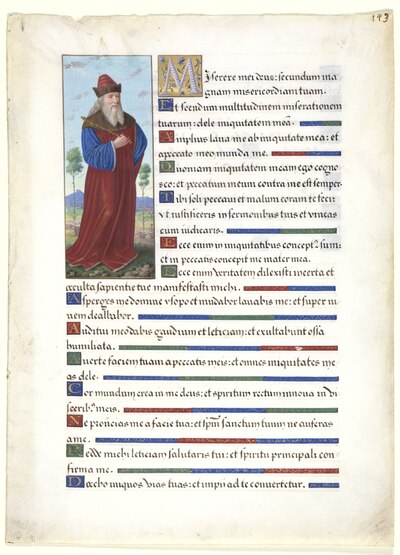 193
Miserere mei deus: secundum ma
gnam misericordiam tuam.
Et secundum multitudinem miserationem
tuarum: dele iniquitatem meã.
Amplius lava me ab iniquitate mea: et
a peccato meo munda me.
Quoniam iniquitatem meam ego cogno
sco: et peccatum meum contra me est semper.
Tibi soli peccavi et malum coram te feci:
vt iustificeris in sermonibus tuis et vincas
cum iudicaris.
Ecce enim in iniquitatibus concept9 sum:
et in peccatis concepit me mater mea.
Ecce enim veritatem dilexisti incerta et
occulta sapientie tue manifestasti michi.
Asperges me domine ysopo et mundabor lavabis me: et super ni
vem dealbabor.
Auditui meo dabis gaudium et leticiam: et exultabunt ossa
humiliata.
Averte faciem tuam a peccatis meis: et omnes iniquitates me
as dele.
Cor mundum crea in me deus: et spiritum rectum innova in vi
sceribus meis.
Ne proiicias me a facie tua: et spm̃ sanctum tuum ne auferas
a me.
Redde michi leticiam salutaris tui: et spiritu principali con
firma me.
Docebo iniquos vias tuas: et impii ad te convertetur.